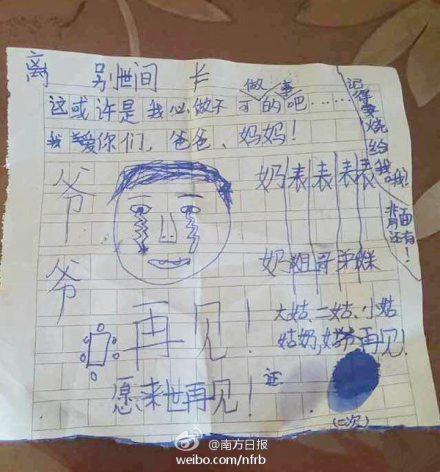 离 别世间 长
做事
这或许是我必做不可的吧……
我爱你们，爸爸、妈妈！
记得要烧给我哦！
背面还有！
爷爷
奶奶
表姐
表哥
表弟
表妹
再见！
大姑、二姑、小姑
姑奶，姑爷再见！
愿来世再见！
证
(二次)
@南方日报
weibo.com/nfrb